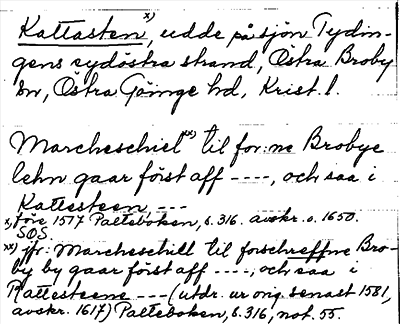 Kattasten x), udde på sjön Tydin-
gens sydöstra strand, Östra Broby
sn, Östra Göinge hd, Krist. l.
Marcheschiel xx) til for:ne Brobye
lehn gaar först aff ----, och saa i
Kattesteen ---
x) före 1577 Palteboken, s. 316. avskr. o. 1650.
SOS.
xx) jfr: Marcheschill til forschreffne Bro-
by by gaar först aff ----, och saa i
Kattesteene --- (utdr. ur orig. senast 1581,
avskr. 1617) Palteboken, s. 316, not. 55.